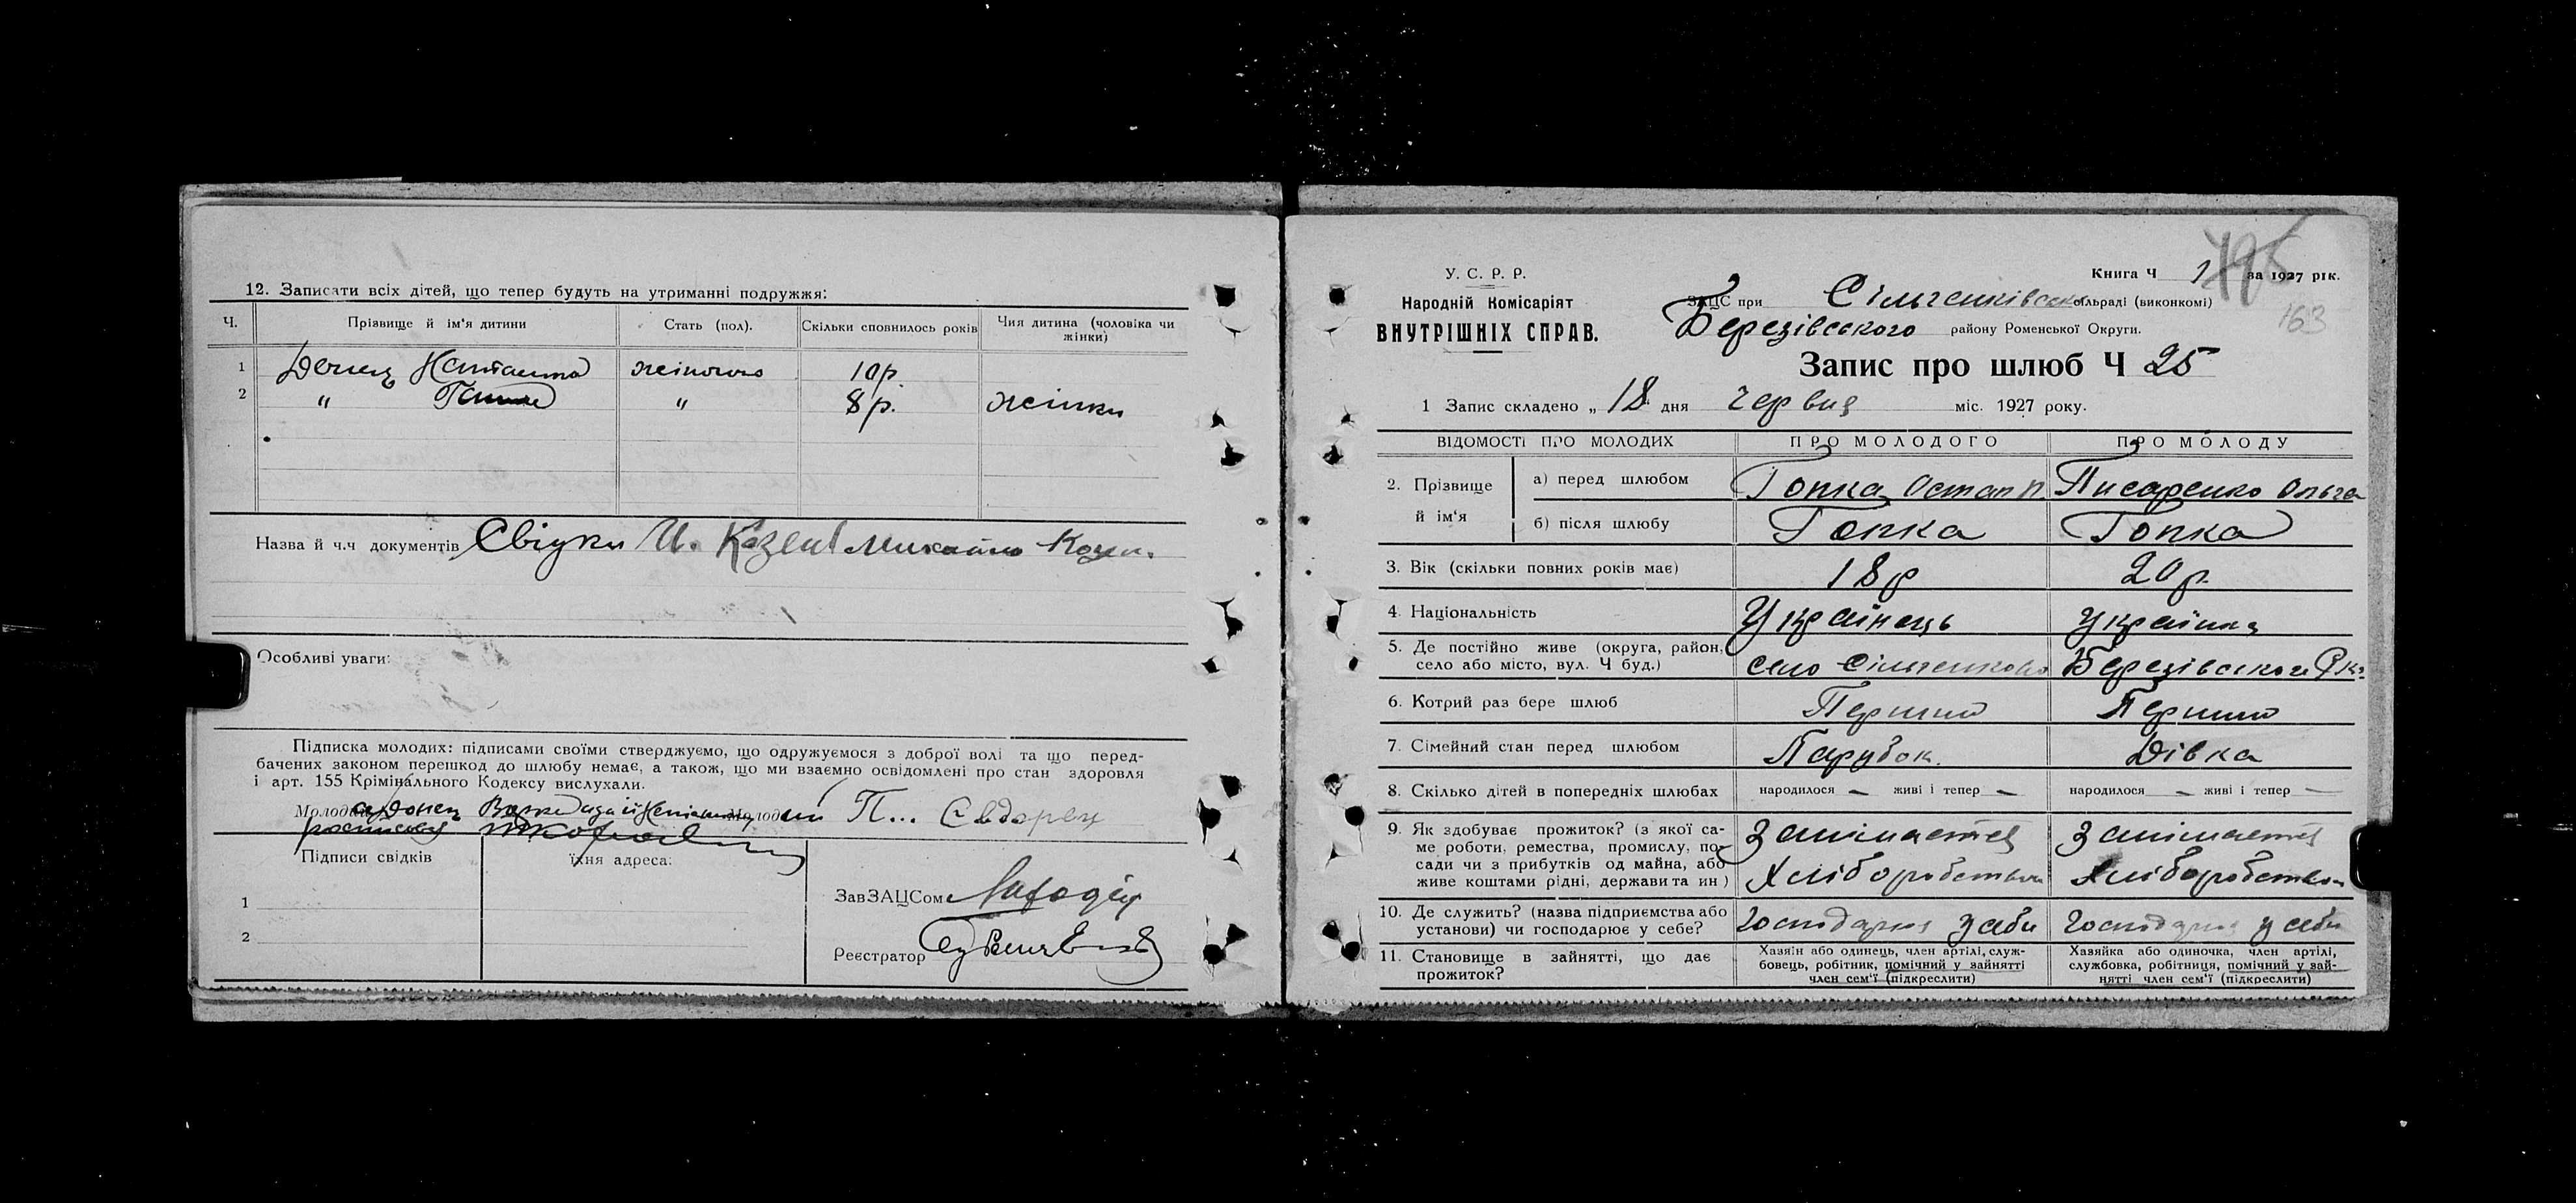 12. Записати всіх дітей, що тепер будуть на утриманні подружжя:
Ч. Прізвище й ім'я дитини Стать (пол). Скільки сповнилось років Чия дитина (чоловіка чи жінки)
1 Донец жіночого 10 р.
2 " " 8 р. жінки
Назва й ч.ч документів Свідки И. Козел Михайло
Особливі уваги:
Підписка молодих: підписами своїми стверджуємо, що одружуємося з доброї волі та що перед-
бачених законом перешкод до шлюбу немає, а також, що ми взаємно освідомлені про стан здоровля
і арт. 155 Крімінального Кодексу вислухали.
Донец П...
Підписи свідків їхня адреса:
1
2
ЗавЗАЦСом
Реєстратор
У. С. Р. Р.
Народній Комісаріят
ВНУТРІШНІХ СПРАВ.
Книга Ч 1 за 1927 рік.
495
163
ЗАЦС при Сільченківськ сільраді (виконкомі)
Березівського району Роменської Округи.
Запис про шлюб Ч 25
1 Запис складено „ 18 дня червця міс. 1927 року.
ВІДОМОСТІ ПРО МОЛОДИХ ПРО МОЛОДОГО ПРО МОЛОДУ
2. Прізвище й ім'я
а) перед шлюбом Гопка Остап П. Писаренко Ольга
б) після шлюбу Гопка Гопка
3. Вік (скільки повних років має) 18 р 20 р.
4. Національність Українець Українка
5. Де постійно живе (округа, район,
село або місто, вул. Ч буд.) село Сільченково Березівского
6. Котрий раз бере шлюб Перший Перший
7. Сімейний стан перед шлюбом Парубок. Дівка
8. Скілько дітей в попередніх шлюбах народилося — живі і тепер — народилося — живі і тепер —
9. Як здобуває прожиток? (з якої са-
ме роботи, ремества, промислу, по-
сади чи з прибутків од майна, або
живе коштами рідні, держави та ин)
Занімается Хліборобством Занімается Хліборобством
10. Де служить? (назва підприємства або
установи) чи господарює у себе? Господарює у себи Господарює у себи
11. Становище в зайнятті, що дає
прожиток?
Хазяїн або одинець, член артілі, служ-
бовець, робітник, помічний у зайнятті
член сем'ї (підкреслити)
Хазяйка або одиночка, член артілі,
службовка, робітниця, помічний у зай-
нятті член сем'ї (підкреслити)